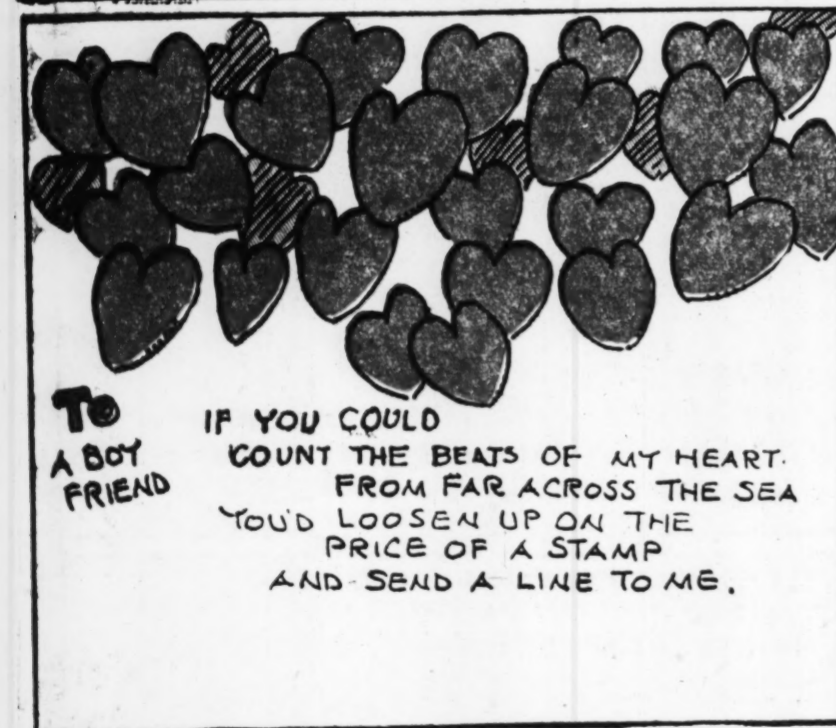 TO
A BOY
FRIEND
IF YOU COULD
COUNT THE BEATS OF MY HEART.
FROM FAR ACROSS THE SEA
YOU'D LOOSEN UP ON THE
PRICE OF A STAMP
AND SEND A LINE TO ME.